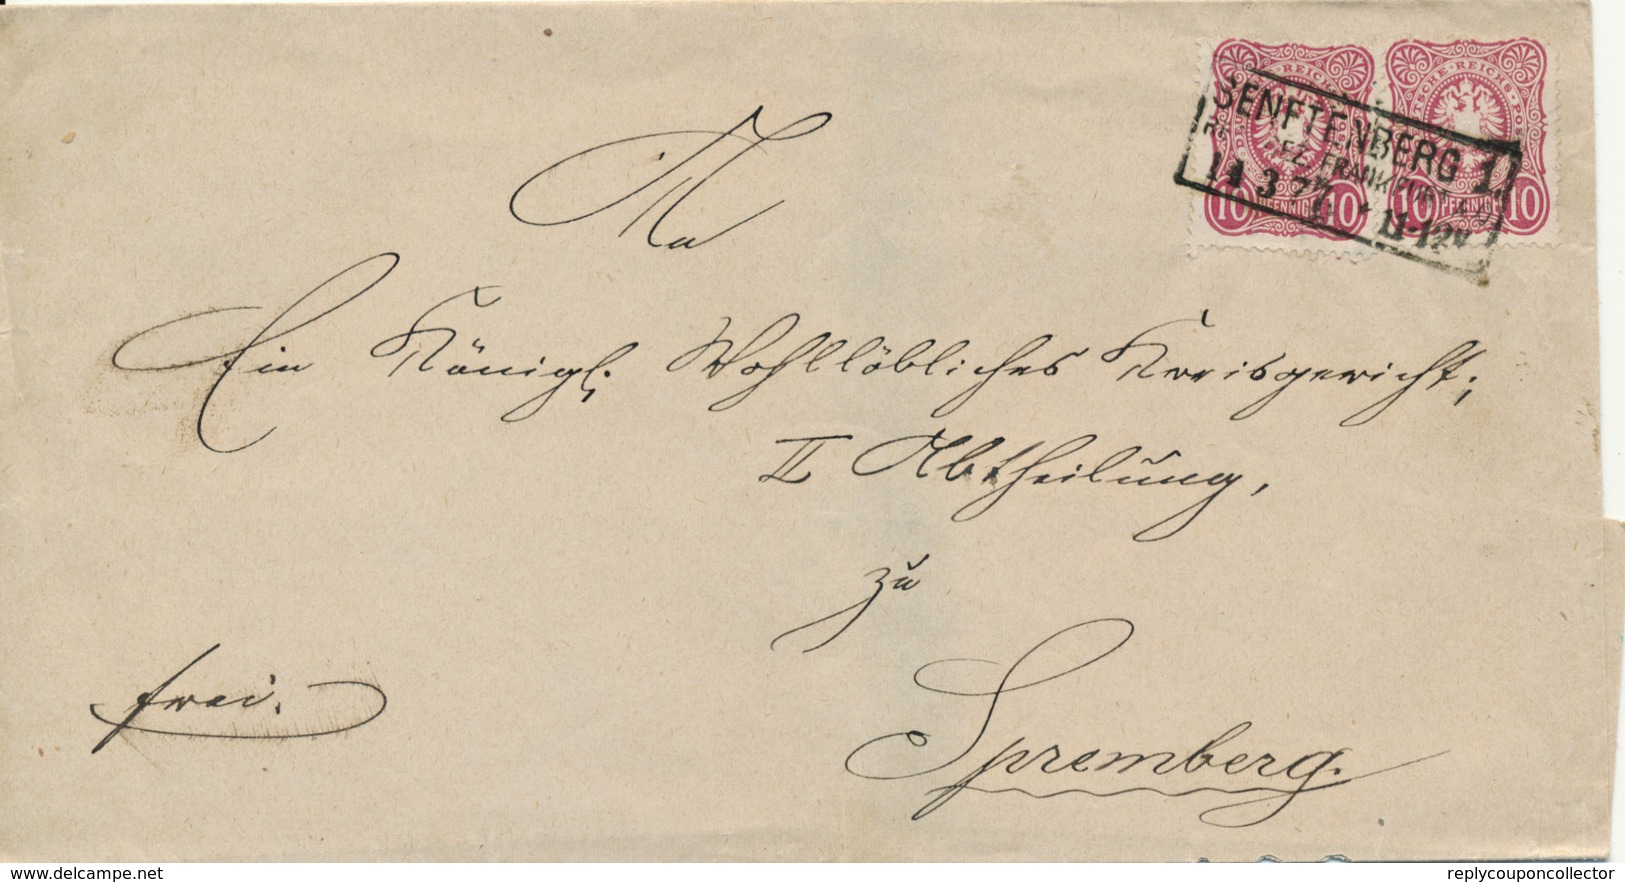 DEUTSCHE REICHS-POST
DEUTSCHE REICHS-POST
10 PFENNIG 10
10 PFENNIG 10
SENFTENBERG 1
REG. BEZ. FRANKFURT A.O.
14 3 77 * 11-12V
An
Ein Königl. Wohllöbliches Kreisgericht;
II Abtheilung,
zu
Spremberg.
frei.
www.delcampe.net
replycouponcollector